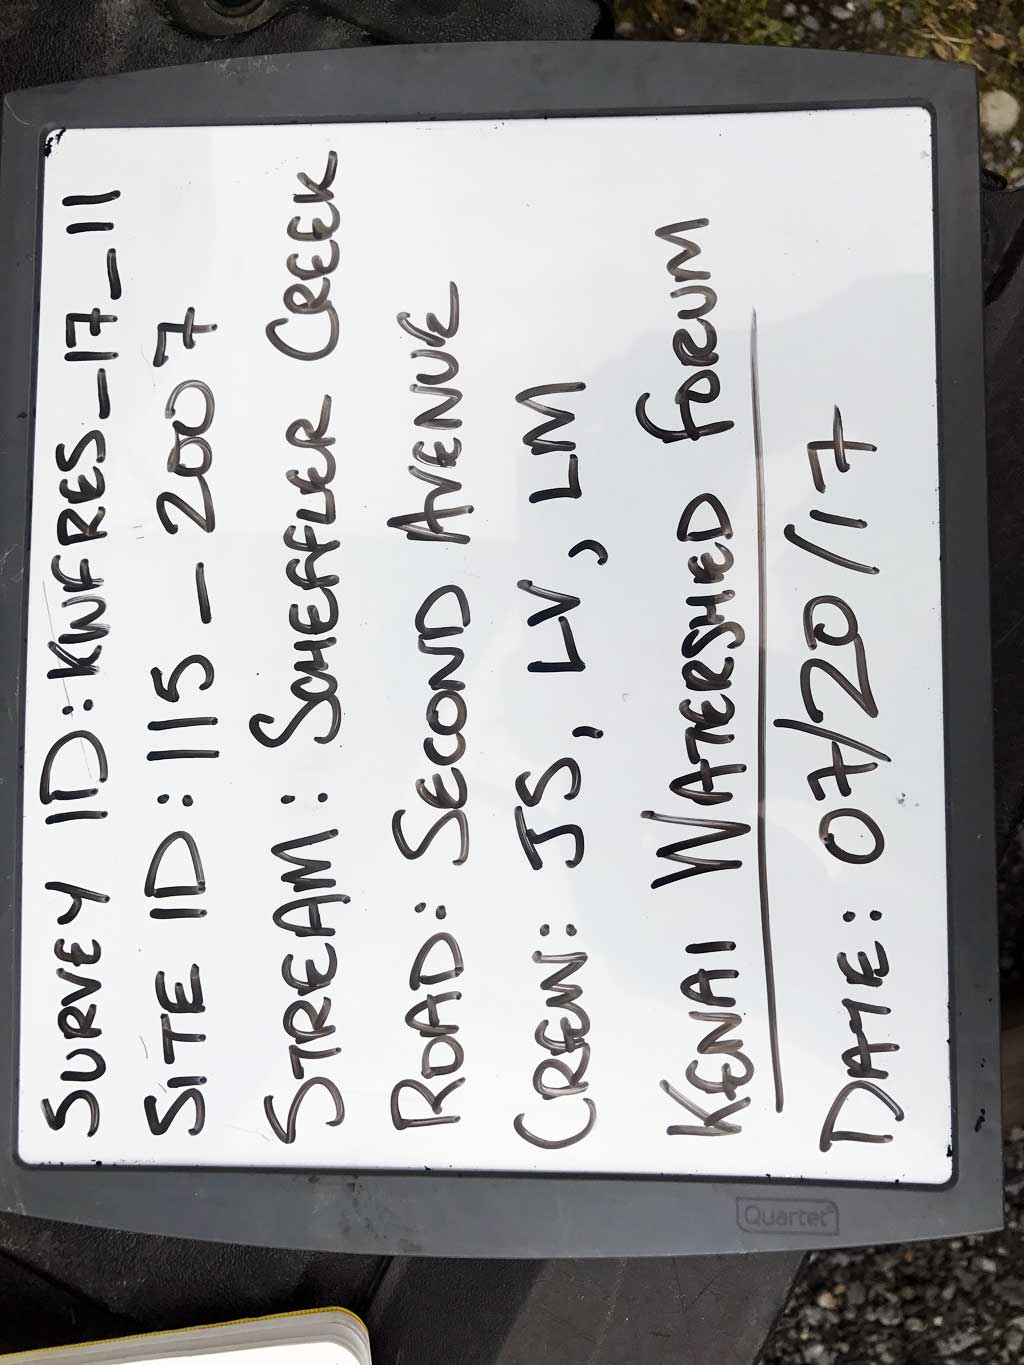 SURVEY ID: KWFRES_17_11
SITE ID: 115 - 2007
STREAM: SCHEFFLER CREEK
ROAD: SECOND AVENUE
CREW: JS, LV, LM
KENAI WATERSHED FORUM
DATE: 07/20/17
Quartet